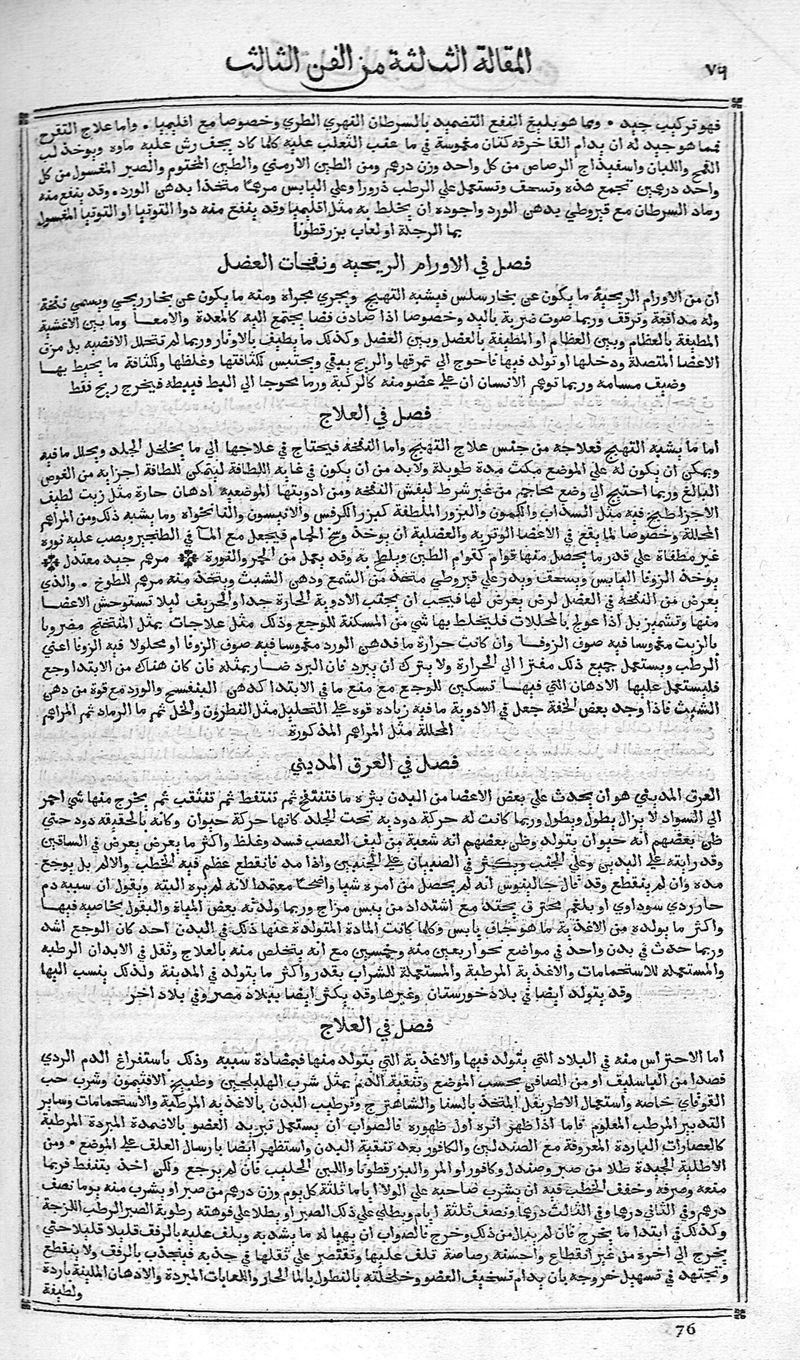 المقالة الثالثة من الفن الثالث
٧٦
فهو تركيب جيد • ومما هو بليغ النفع التضميد بالسرطان النهري الطري وخصوصا مع اقليميا • واما علاج التقرح
فمما هو جيد له ان يدام القا خرقة كتان مغموسة في ما عنب الثعلب عليه كلما كاد يجف رش عليه ماوه ويوخذ لب
القمح واللبان واسفيذاج الرصاص من كل واحد وزن درهم ومن الطين الارمني والطين المختوم والصبر المغسول من كل
واحد درهمين تجمع هذه وتسحق وتستعمل علي الرطب ذرورا وعلي اليابس مرهما متخذا بدهن الورد • وقد ينفع منه
رماد السرطان مع قيروطي بدهن الورد واجوده ان يخلط به مثل اقليميا وقد ينفع منه دوا التوتيا او التوتيا المغسول
بما الرجلة او لعاب بزرقطونا
فصل في الاورام الريحية ونفخات العضل
ان من الاورام الريحية ما يكون عن بخار سلس فيشبه التهيج ويجري مجراة ومنه ما يكون عن بخار ريحي ويسمي نفخة
وله مدافعة وترقف وربما صوت ضربة باليد وخصوصا اذا صادف فضا يجتمع اليه كالمعدة والامعا وما بين الاغشية
المطيفة بالعظام وبين العظام او المطيفة بالعضل وبين العضل وكذلك ما يطيف بالاوتار وربما لم تتخلل الافضية بل مزق
الاعضا المتصلة ودخلها او تولد فيها فاحوج الي تمزقها والريح يبقي ويحتبس لكثافتها وغلظها ولكثافة ما يحيط بها
وضيق مسامه وربما توهم الانسان ان علي عضو منه كالركبة ورما محوجا الي البط فيبطه فيخرج ريح فقط
فصل في العلاج
اما ما يشبه التهيج فعلاجه من جنس علاج التهيج واما النفخة فيحتاج في علاجها الي ما يخلخل الجلد ويحلل ما فيه
ويمكن ان يكون له علي الموضع مكث مدة طويلة ولابد من ان يكون في غاية اللطافة ليتمكن للطافة اجزايه من الغوص
البالغ وربما احتيج الي وضع محاجم من غير شرط ليفش النفخة ومن ادويتها الموضعية ادهان حارة مثل زيت لطيف
الاجزا طبخ فيه مثل السذاب والكمون والبزور الملطفة كبزر الكرفس والانيسون والنانخواة وما يشبه ذلك ومن المراهم
المحللة وخصوصا لما يقع في الاعضا الوترية والعضلية ان يوخذ وسخ الحمام فيجعل مع المآ في الطنجير ويصب عليه نورة
غير مطفاة علي قدر ما يحصل منها قوام كقوام الطين ويلطخ به وقد يعمل من الخر والنورة مرهم جيد معتدل
يوخذ الزوفا اليابس ويسحق ويبدر علي قيروطي متخذ من الشمع ودهن الشبث ويتخذ منه مرهم للطوخ • والذي
يعرض من النفخة في العضل لرض يعرض لها فيجب ان يجتنب الادوية الحارة جدا والحريف ليلا تستوحش الاعضا
منها وتشمئز بل اذا عولج بالمحللات فليخلط بها شي من المسكنة للوجع وذلك مثل علاجات بمثل المنفتج مضروبا
بالزيت مغموسا فيه صوف الزوفا وان كانت حرارة ما فدهن الورد مغموسا فيه صوف الزوفا او محلولا فيه الزوفا اعني
الرطب ويستعمل جميع ذلك مفترا الي الحرارة ولا يترك ان يبرد فان البرد ضار بمثله فان كان هناك من الابتدا وجع
فليستعمل عليها الادهان التي فيها تسكين للوجع مع منع ما في الابتدا كدهن البنفسج والورد مع قوة من دهن
الشبث فاذا وجد بعض الخفة جعل في الادوية ما فيه زيادة قوة علي التحليل مثل النطرون والخل ثم ما الرماد ثم المراهم
المحللة مثل المراهم المذكورة
فصل في العرق المديني
العرق المديني هو ان يحدث علي بعض الاعضا من البدن بثرة ما فتنتفخ ثم تتنفط ثم تتثقب ثم يخرج منها شي احمر
الي السواد لا يزال يطول ويطول وربما كانت له حركة دودية تحت الجلد كانها حركة حيوان وكانه بالحقيقة دود حتي
ظن بعضهم انه حيوان يتولد وظن بعضهم انه شعبة من ليف العصب فسد وغلظ واكثر ما يعرض يعرض في الساقين
وقد رايته علي اليدين وعلي الجنب ويكثر في الصبيان علي الجنبين واذا مد فانقطع عظم فيه الخطب والالم بل يوجع
مده وان لم ينقطع وقد قال جالينوس انه لم يحصل من امره شيا واضحا معتمدا لانه لم يره البتة ويقول ان سببه دم
حار ردي سوداوي او بلغم محترق يحتد مع اشتداد من يبس مزاج وربما ولدته بعض المياة والبقول بخاصية فيها
واكثر ما يولده من الاغذية ما هو جاف يابس وكلما كانت المادة المتولدة عنها ذلك في البدن احد كان الوجع اشد
وربما حدث في بدن واحد في مواضع نحو اربعين منه وخمسين مع انه يتخلص منه بالعلاج وتقل في الابدان الرطبة
والمستعملة للاستحمامات والاغذية المرطبة والمستعملة للشراب بقدر واكثر ما يتولد في المدينة ولذلك ينسب اليها
وقد يتولد ايضا في بلاد خورستان وغيرها وقد يكثر ايضا ببلاد مصر وفي بلاد اخر
فصل في العلاج
اما الاحتراس منه في البلاد التي يتولد فيها والاغذية التي يتولد منها فبمضادة سببه وذلك باستفراغ الدم الردي
فصدا من الباسليق او من الصافن بحسب الموضع وتنقية الدم بمثل شرب الهليلجين وطبيخ الافتيمون وشرب حب
القوقاي خاصة واستعمال الاطريفل المتخذ بالسنا والشاهترج وترطيب البدن بالاغذية المرطبة والاستحمامات وساير
التدبير المرطب المعلوم فاما اذا ظهر اثره اول ظهوره فالصواب ان يستعمل تبريد العضو بالاضمدة المبردة المرطبة
كالعصارات الباردة المعروفة مع الصندلين والكافور بعد تنقية البدن واستظهر ايضا بارسال العلق علي الموضع • ومن
الاطلية الجيدة طلا من صبر وصندل وكافور او المر والبزرقطونا واللبن الحليب فان لم يرجع ولكن اخذ يتنفط فربما
منعه وصرفه وخفف الخطب فيه ان يشرب صاحبه علي الولا اياما ثلثة كل يوم وزن درهم من صبر او يشرب منه يوما نصف
درهم وفي الثاني درهما وفي الثالث درهما ونصف ثلثة ايام ويطلي علي ذلك الصبر او يطلا علي فوهته رطوبة الصبر الرطب اللزجة
وكذلك في ابتدا ما يخرج فان لم يبال من ذلك وخرج فالصواب ان يهيا له ما يشد به ويلف عليه بالرفق قليلا قليلا حتي
يخرج الي اخره من غير انقطاع واحسنه رصاصة تلف عليها وتقتصر علي ثقلها في جذبه فينجذب بالرفق ولا ينقطع
وتجتهد في تسهيل خروجه بان يدام تسخيف العضو وخلخلته بالنطول بالما الحار واللعابات المبردة والادهان الملينة باردة
ولطيفة
76